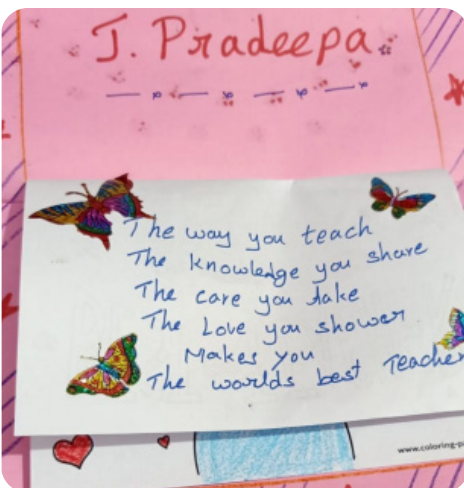 J. Pradeepa
The way you teach
The knowledge you share
The care you take
The Love you shower
Makes you
The worlds best Teacher
www.coloring-p